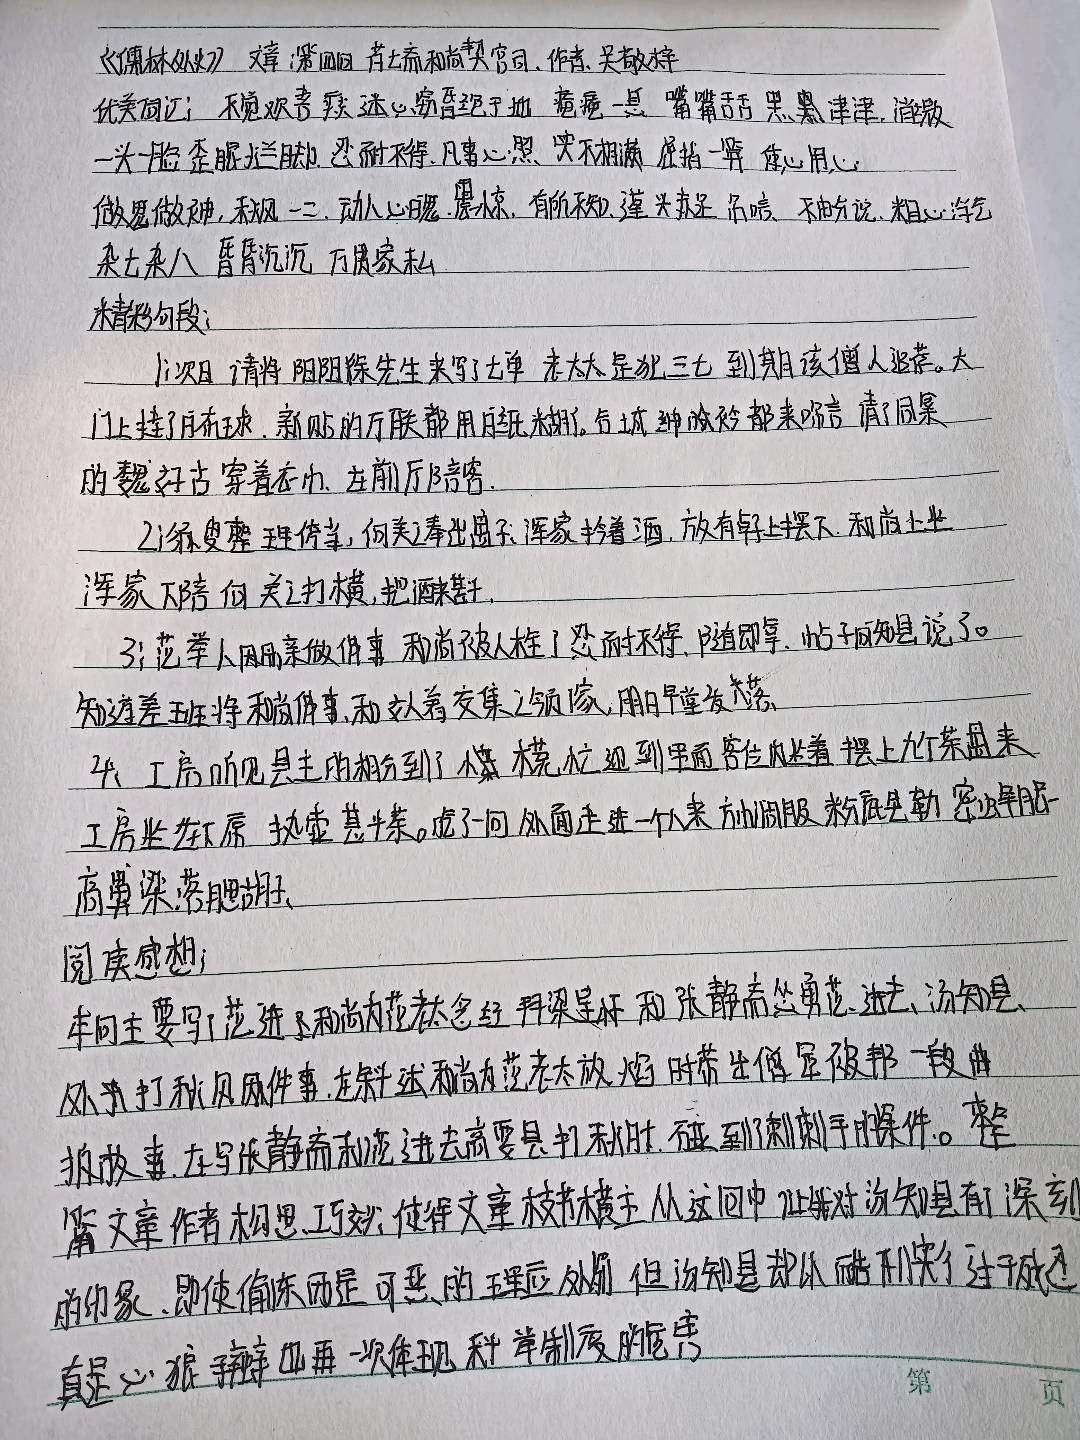 《儒林外史》 文章:第四回 荐亡斋和尚契官司、作者、吴敬梓
优美词汇; 不觉欢喜 痰迷心窍 昏绝于地 疯疯一 嘴嘴舌舌 黑黑津津, 消缴
一头一脸 歪腿烂脚, 忍耐不得, 凡事心照、哭不相瞒 屈指一算 使心用心
做鬼做神, 秋风一二, 动人心魄、震惊, 有所不知, 逢兴 吊唁、不由分说、粗心浮气
杂七杂八 昏昏沉沉 万贯家私
精彩句段;
1;次日 请将阴阳徐先生来写了七单 老太太是犯三七 到期该僧人追荐。大
门上挂了布球、新贴的厅联都用白纸糊了。合城绅衿都来吊唁 请了同案
的魏好古 穿着衣巾、在前厅陪客.
2; 整理停当, 何美之奉出盘子, 浑家拎着酒, 放在桌子上摆下. 和尚上坐
浑家下陪 何美之打横, 把酒来斟.
3;范举人因母亲做佛事 和尚被人拴了 忍耐不得、随即拿帖子向知县说了。
知县差班将和尚 和女人着交美之领家, 明日早堂发落、
4、工房听见县主的相与到了 慌忙迎到里面客位内坐着 摆上九个茶盘来
工房坐在下席 执壶斟茶。吃了一回 外面走进一个人来 方巾阔服 粉底皂靴 密蜂眼
高鼻梁 落腮胡子、
阅读感想;
本回主要写了范进与和尚为范老太念经 和张静斋怂勇范进去、汤知县、
处去打秋风两件事, 在叙述和尚为范老太放焰时带出僧 被邦 一段曲
折故事. 在写张静斋和范进去高要县打秋时. 碰到了刺刺手的案件。整
篇文章作者构思工巧妙, 使得文章枝书横生 从这回中 让我对汤知县有了深刻
的印象、即使偷东西是可恶的理应处罚 但汤知县却以酷刑
真是心狠手辣 也再一次体现科举制度的危害
第 页